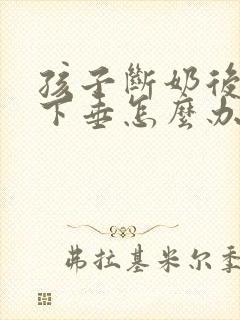 孩子斷奶後
下垂怎麼办
弗拉基米尔季